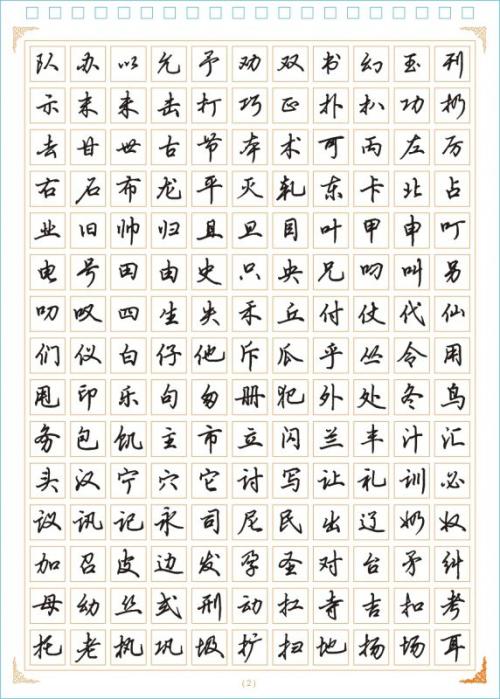 队办以允予劝双书幻玉刊
示末未击打巧正扑扒功扔
去甘世古节本术可丙左厉
右石布龙平灭轧东卡北占
业旧帅归且旦目叶甲申叮
电号田由史只央兄叼叫另
叨叹四生失禾丘付仗代仙
们仪白仔他斥瓜乎丛令用
甩印乐句匆册犯外处冬鸟
务包饥主市立闪兰半汁汇
头汉宁穴它讨写让礼训必
议讯记永司尼民出辽奶奴
加召皮边发孕圣对台矛纠
母幼丝式刑动扛寺吉扣考
托老执巩圾扩扫地扬场耳
(2)